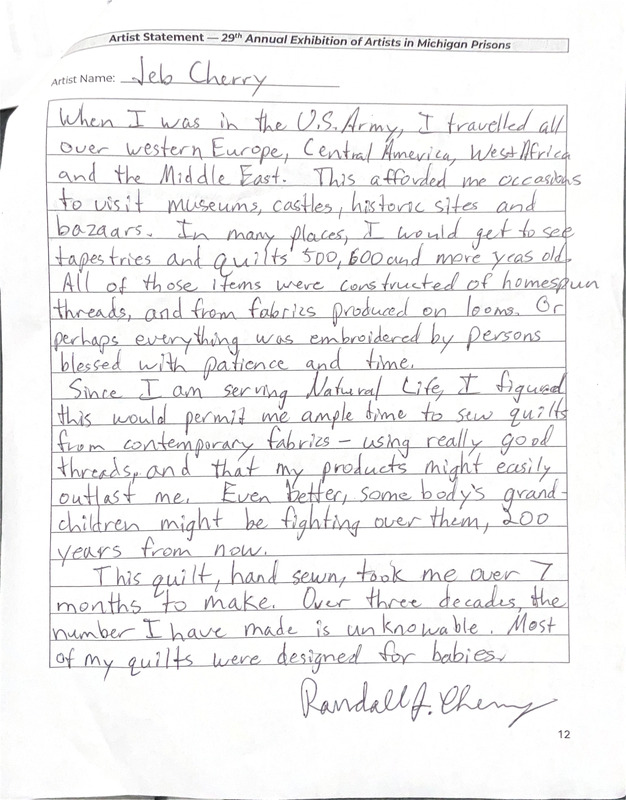 Artist Statement — 29th Annual Exhibition of Artists in Michigan Prisons
Artist Name: Jeb Cherry
When I was in the U.S. Army, I travelled all
over western Europe, Central America, West Africa
and the Middle East. This afforded me occasions
to visit museums, castles, historic sites and
bazaars. In many places, I would get to see
tapestries and quilts 500, 600 and more years old.
All of those items were constructed of homespun
threads, and from fabrics produced on looms. Or
perhaps everything was embroidered by persons
blessed with patience and time.
Since I am serving Natural Life, I figured
this would permit me ample time to sew quilts
from contemporary fabrics – using really good
threads, and that my products might easily
outlast me. Even better, some body's grand-
children might be fighting over them, 200
years from now.
This quilt, hand sewn, took me over 7
months to make. Over three decades, the
number I have made is unknowable. Most
of my quilts were designed for babies.
Randall J. Cherry
12